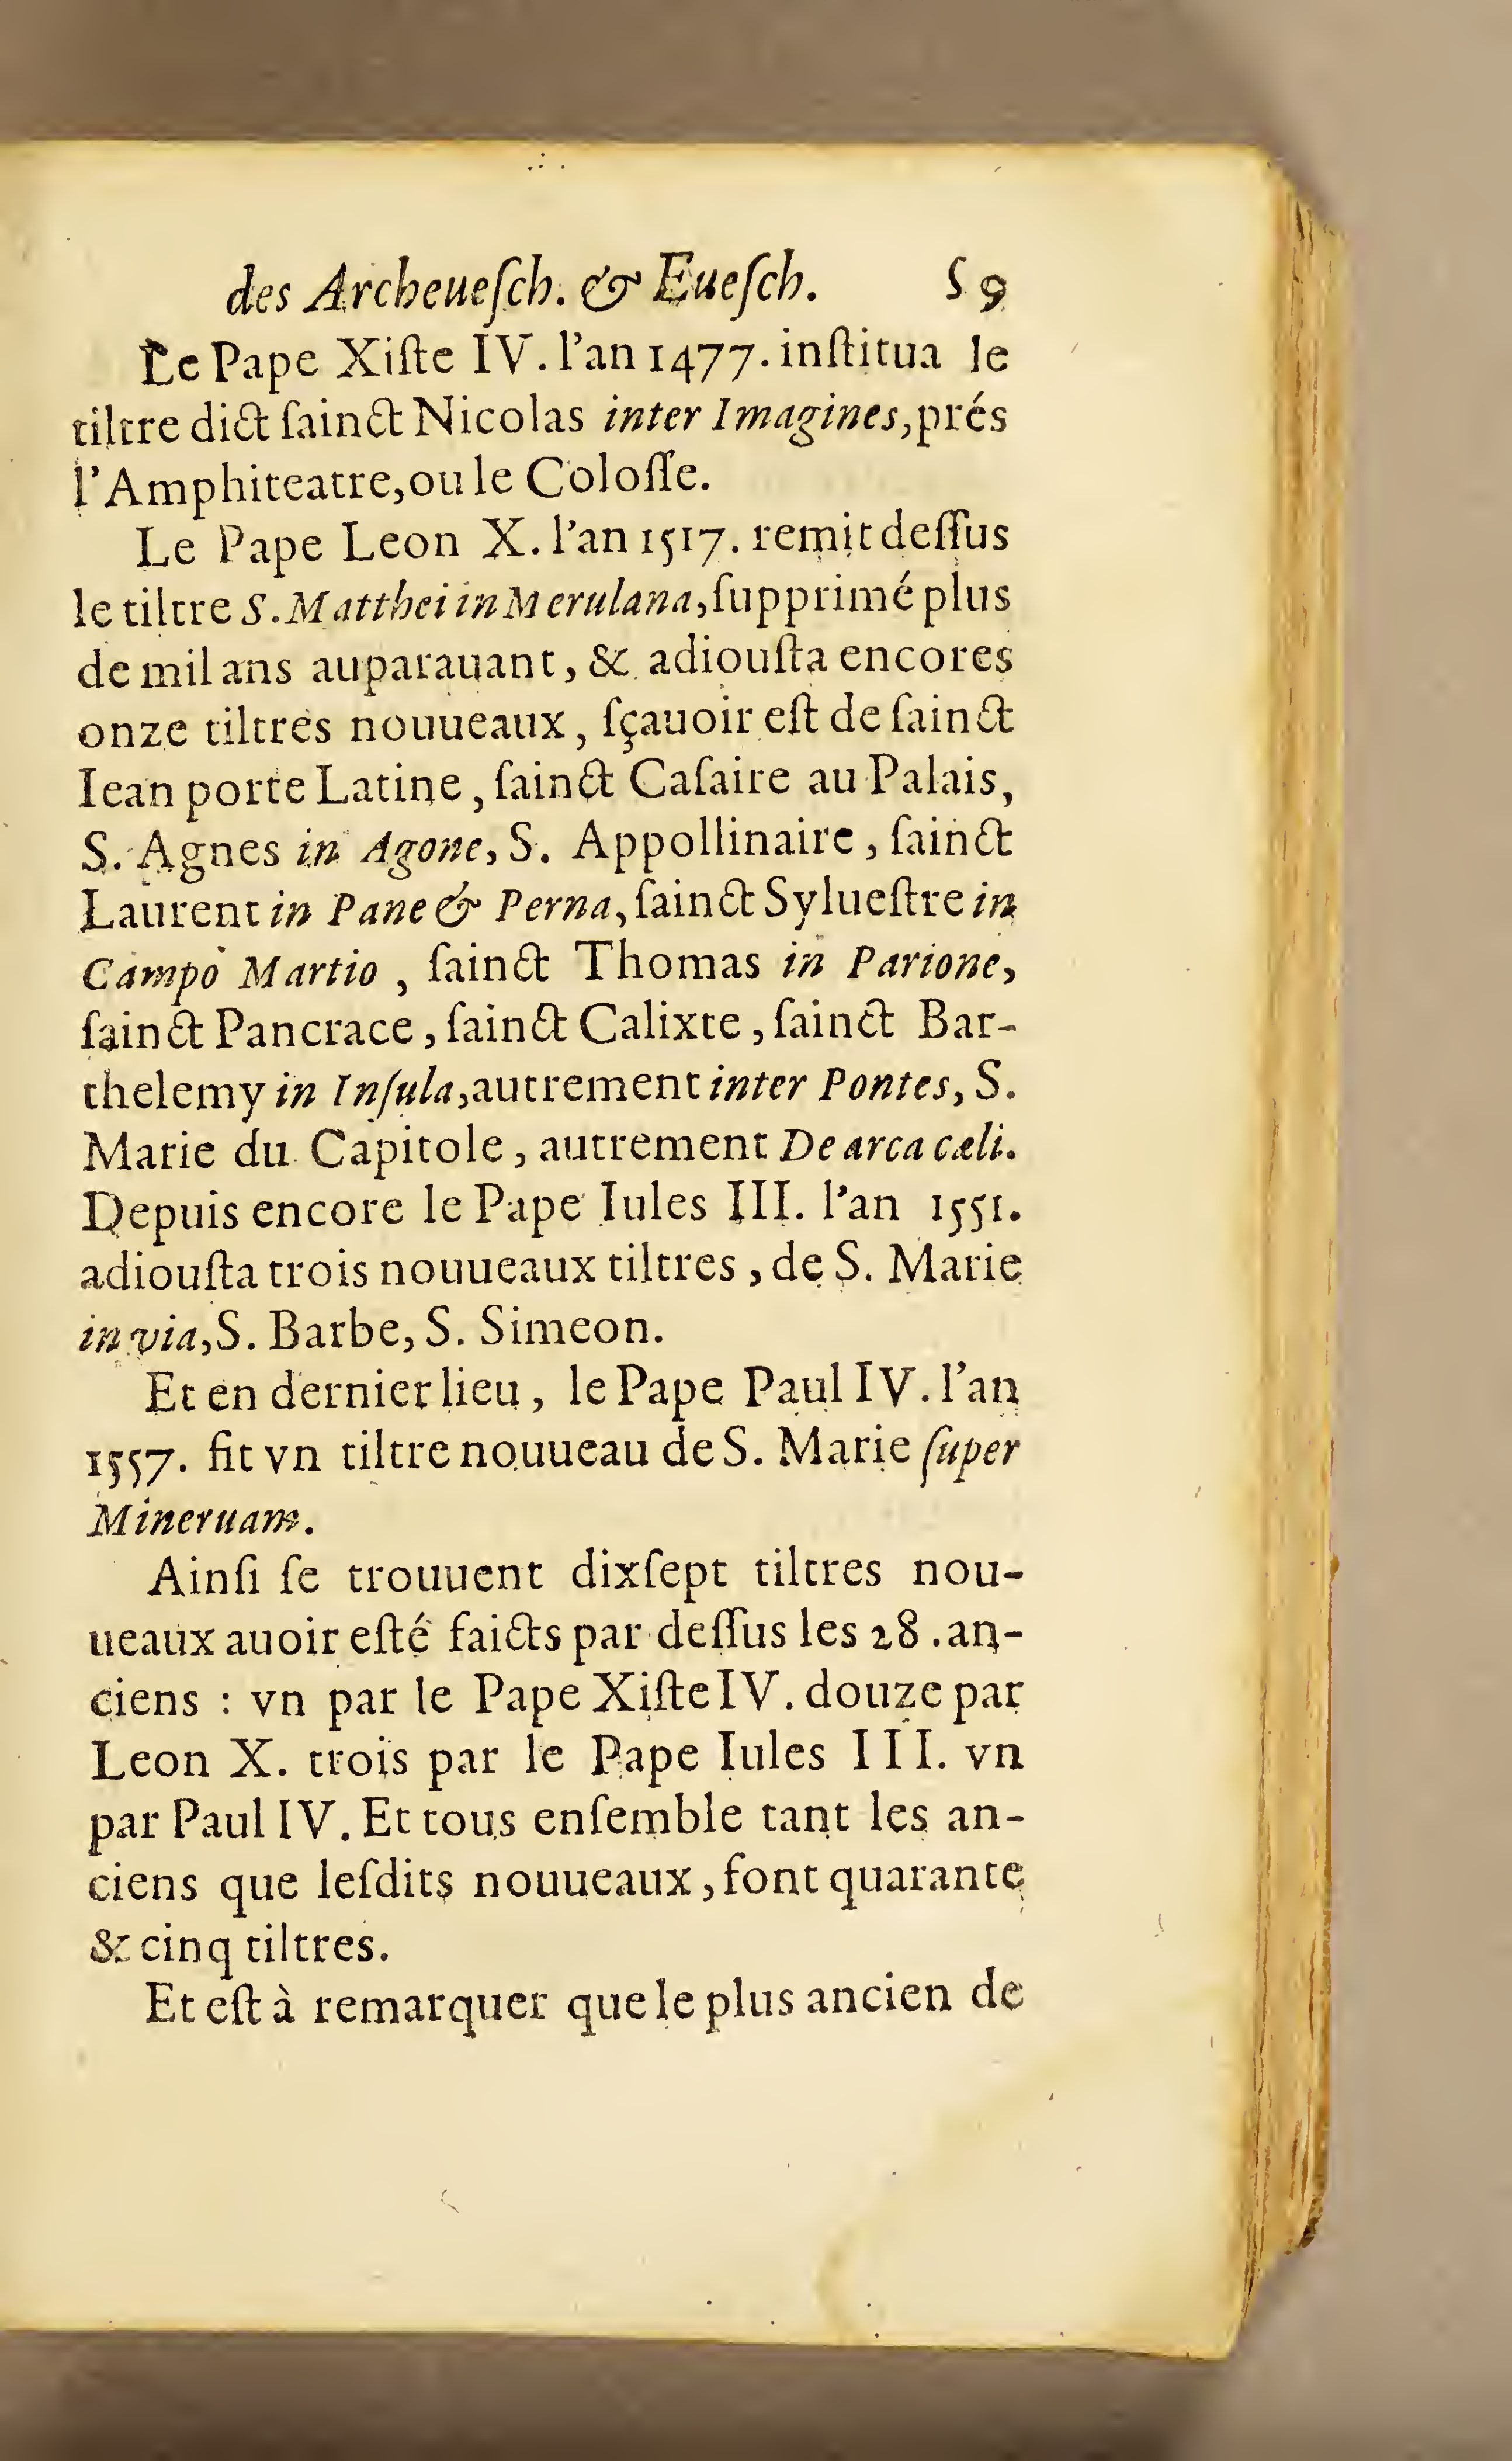 des Archeueſch. & Eueſch. 59
Le Pape Xiſte IV. l'an 1477. inſtitua le
tiltre dict ſainct Nicolas inter Imagines, prés
l'Amphiteatre, ou le Coloſſe.
Le Pape Leon X. l'an 1517. remit deſſus
le tiltre S. Matthei in Merulana, ſupprimé plus
de mil ans auparauant, & adiouſta encores
onze tiltres nouueaux, ſçauoir eſt de ſainct
Iean porte Latine, ſainct Caſaire au Palais,
S. Agnes in Agone, S. Appollinaire, ſainct
Laurent in Pane & Perna, ſainct Sylueſtre in
Campo Martio, ſainct Thomas in Parione,
ſainct Pancrace, ſainct Calixte, ſainct Bar-
thelemy in Inſula, autrement inter Pontes, S.
Marie du Capitole, autrement De arca cæli.
Depuis encore le Pape Iules III. l'an 1551.
adiouſta trois nouueaux tiltres, de S. Marie
in via, S. Barbe, S. Simeon.
Et en dernier lieu, le Pape Paul IV. l'an
1557. fit vn tiltre nouueau de S. Marie ſuper
Mineruam.
Ainſi ſe trouuent dixſept tiltres nou-
ueaux auoir eſté faicts par deſſus les 28. an-
ciens : vn par le Pape Xiſte IV. douze par
Leon X. trois par le Pape Iules III. vn
par Paul IV. Et tous enſemble tant les an-
ciens que leſdits nouueaux, font quarante
& cinq tiltres.
Et eſt à remarquer que le plus ancien de